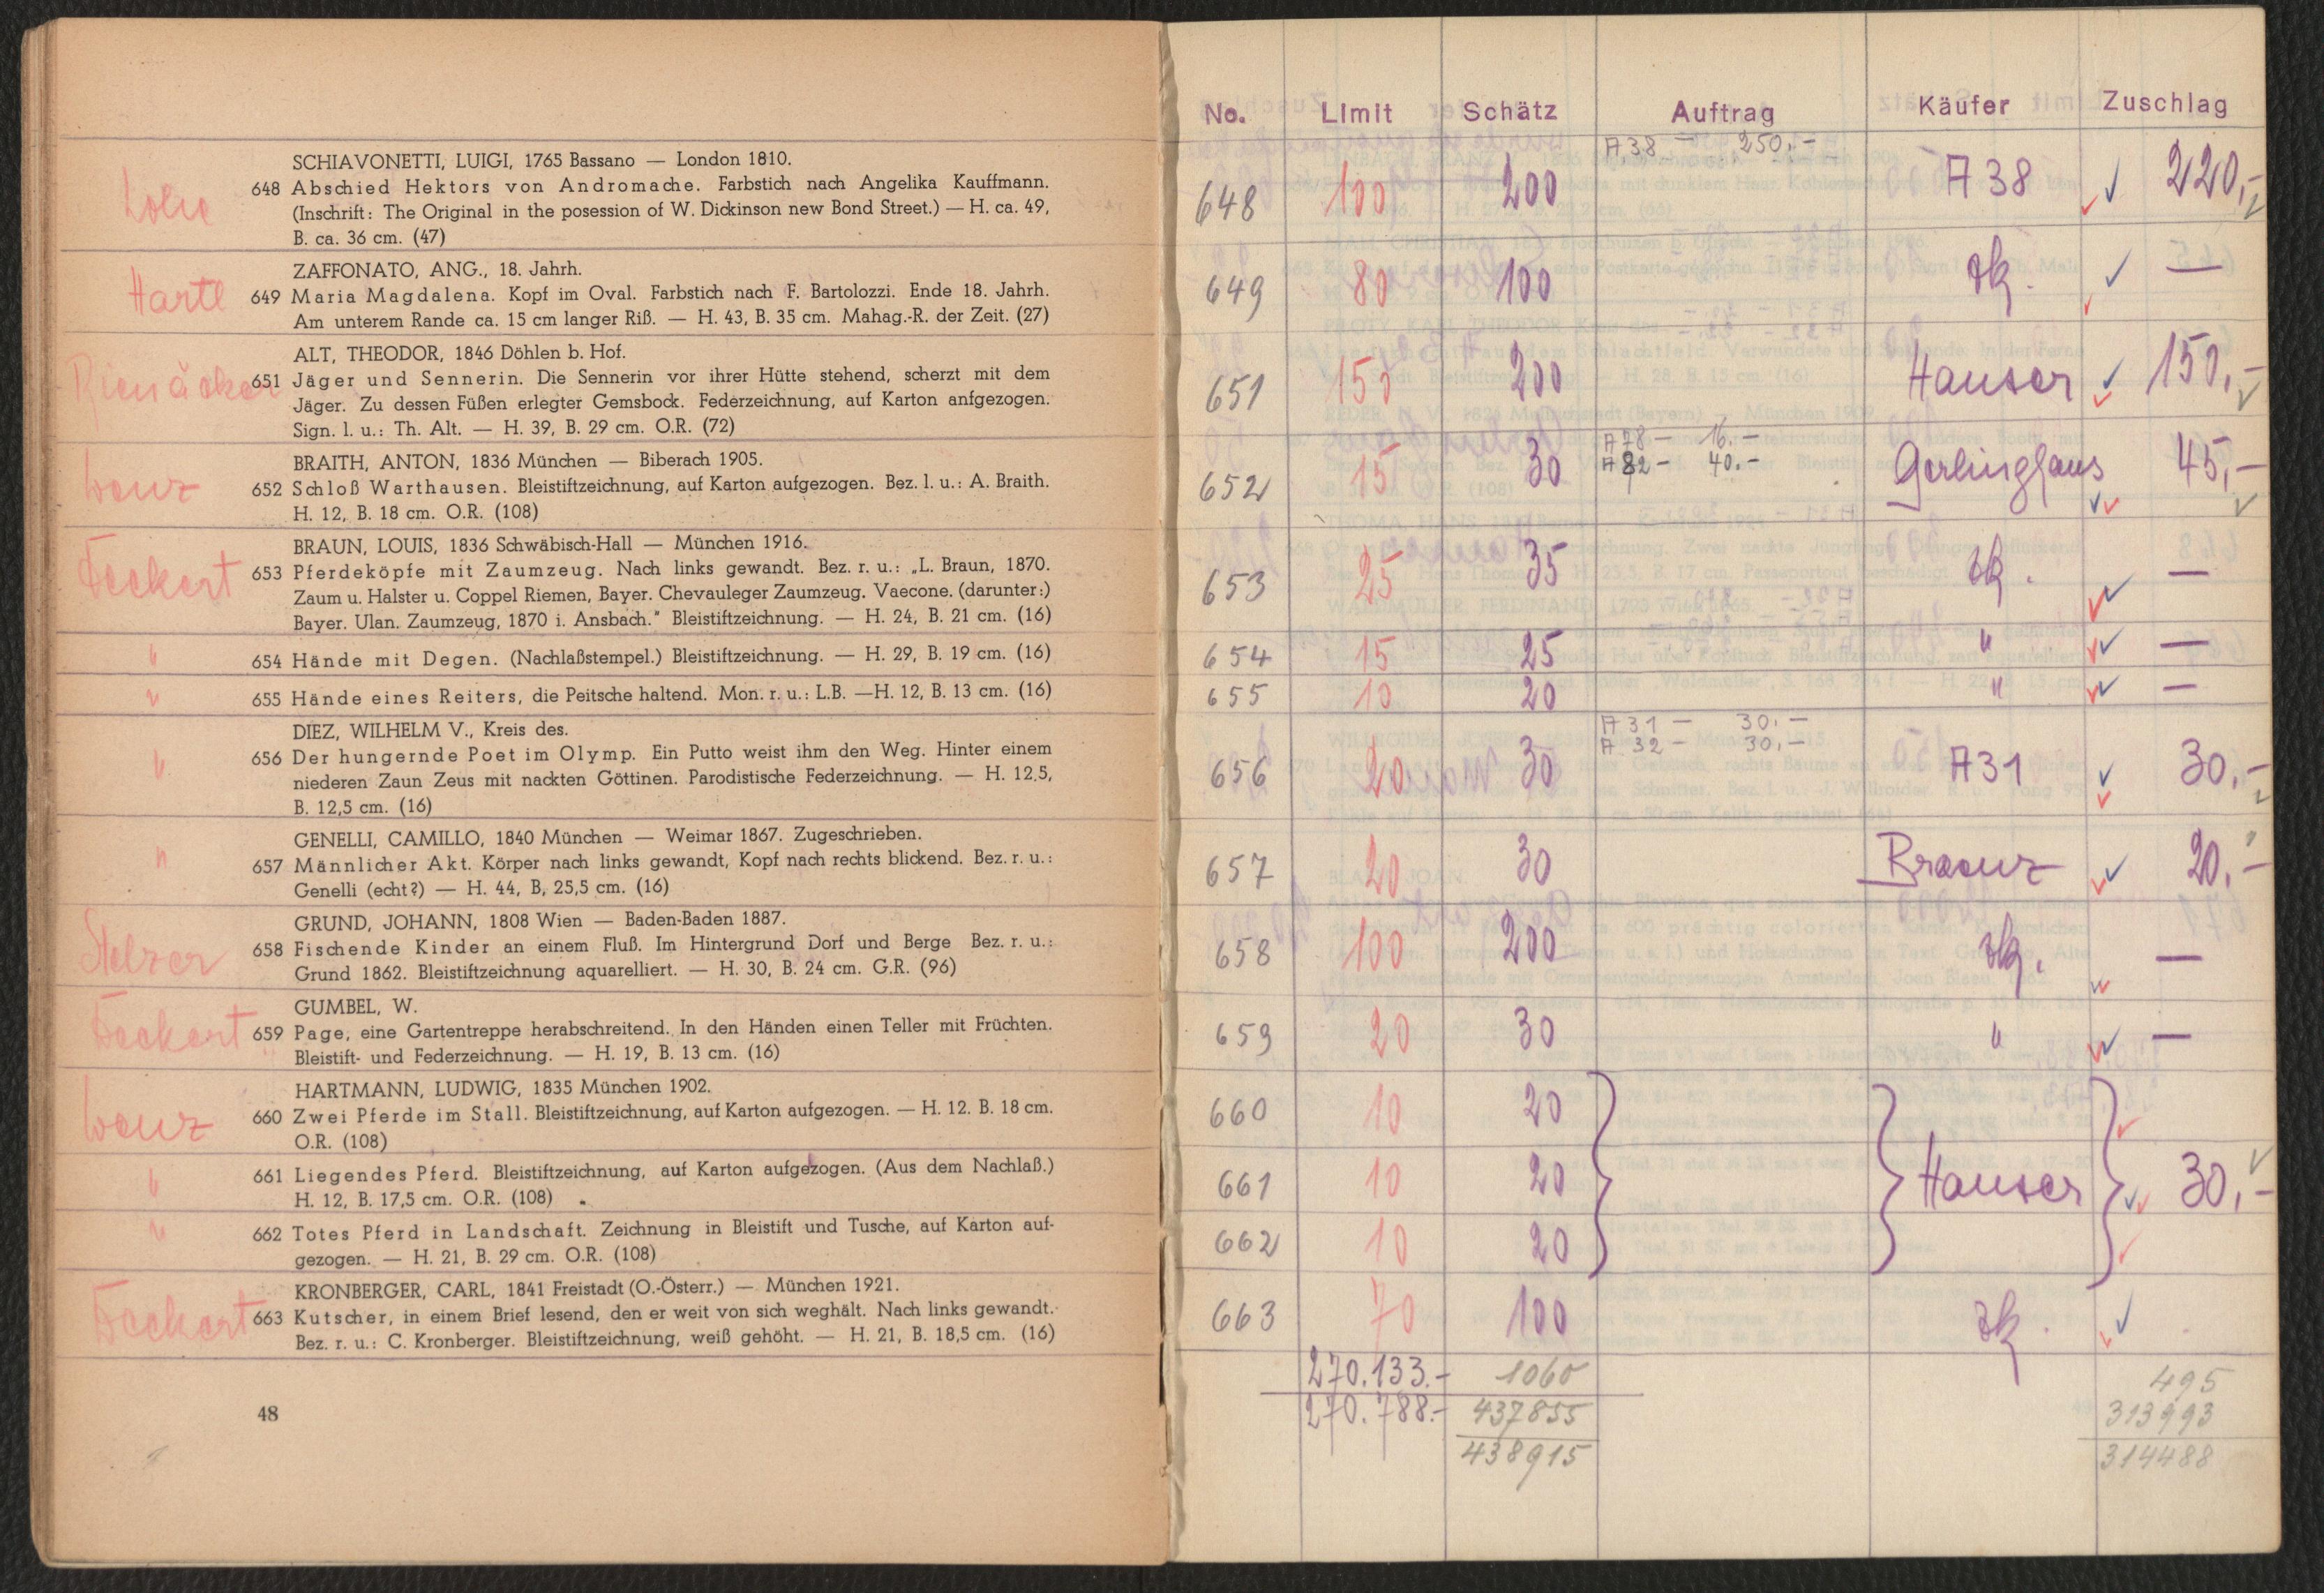 SCHIAVONETTI, LUIGI, 1765 Bassano — London 1810.
648 Abschied Hektors von Andromache. Farbstich nach Angelika Kauffmann.
(Inschrift: The Original in the posession of W. Dickinson new Bond Street.) — H. ca. 49,
B. ca. 36 cm. (47)
Hartl
ZAFFONATO, ANG., 18. Jahrh.
649 Maria Magdalena. Kopf im Oval. Farbstich nach F. Bartolozzi. Ende 18. Jahrh.
Am unterem Rande ca. 15 cm langer Riß. — H. 43, B. 35 cm. Mahag.-R. der Zeit. (27)
Rienäcker
ALT, THEODOR, 1846 Döhlen b. Hof.
651 Jäger und Sennerin. Die Sennerin vor ihrer Hütte stehend, scherzt mit dem
Jäger. Zu dessen Füßen erlegter Gemsbock. Federzeichnung, auf Karton anfgezogen.
Sign. l. u.: Th. Alt. — H. 39, B. 29 cm. O.R. (72)
BRAITH, ANTON, 1836 München — Biberach 1905.
652 Schloß Warthausen. Bleistiftzeichnung, auf Karton aufgezogen. Bez. l. u.: A. Braith.
H. 12, B. 18 cm. O.R. (108)
Feckert
BRAUN, LOUIS, 1836 Schwäbisch-Hall — München 1916.
653 Pferdeköpfe mit Zaumzeug. Nach links gewandt. Bez. r. u.: „L. Braun, 1870.
Zaum u. Halster u. Coppel Riemen, Bayer. Chevauleger Zaumzeug. Vaecone. (darunter:)
Bayer. Ulan. Zaumzeug, 1870 i. Ansbach." Bleistiftzeichnung. — H. 24, B. 21 cm. (16)
" 654 Hände mit Degen. (Nachlaßstempel.) Bleistiftzeichnung. — H. 29, B. 19 cm. (16)
" 655 Hände eines Reiters, die Peitsche haltend. Mon. r. u.: L.B. —H. 12, B. 13 cm. (16)
DIEZ, WILHELM V., Kreis des.
" 656 Der hungernde Poet im Olymp. Ein Putto weist ihm den Weg. Hinter einem
niederen Zaun Zeus mit nackten Göttinen. Parodistische Federzeichnung. — H. 12,5,
B. 12,5 cm. (16)
GENELLI, CAMILLO, 1840 München — Weimar 1867. Zugeschrieben.
" 657 Männlicher Akt. Körper nach links gewandt, Kopf nach rechts blickend. Bez. r. u.:
Genelli (echt?) — H. 44, B, 25,5 cm. (16)
Stelzer
GRUND, JOHANN, 1808 Wien — Baden-Baden 1887.
658 Fischende Kinder an einem Fluß. Im Hintergrund Dorf und Berge Bez. r. u.:
Grund 1862. Bleistiftzeichnung aquarelliert. — H. 30, B. 24 cm. G.R. (96)
Feckert
GUMBEL, W.
659 Page, eine Gartentreppe herabschreitend. In den Händen einen Teller mit Früchten.
Bleistift- und Federzeichnung. — H. 19, B. 13 cm. (16)
HARTMANN, LUDWIG, 1835 München 1902.
660 Zwei Pferde im Stall. Bleistiftzeichnung, auf Karton aufgezogen. — H. 12. B. 18 cm.
O.R. (108)
" 661 Liegendes Pferd. Bleistiftzeichnung, auf Karton aufgezogen. (Aus dem Nachlaß.)
H. 12, B. 17,5 cm. O.R. (108)
" 662 Totes Pferd in Landschaft. Zeichnung in Bleistift und Tusche, auf Karton auf-
gezogen. — H. 21, B. 29 cm. O.R. (108)
Feckert
KRONBERGER, CARL, 1841 Freistadt (O.-Österr.) — München 1921.
663 Kutscher, in einem Brief lesend, den er weit von sich weghält. Nach links gewandt.
Bez. r. u.: C. Kronberger. Bleistiftzeichnung, weiß gehöht. — H. 21, B. 18,5 cm. (16)
48
No. Limit Schätz Auftrag Käufer Zuschlag
A38 — 250.-
648 100 200 A 38 220,-
649 80 100 zk. —
651 150 200 Hauser 150,-
A78 - 16.-
A82 - 40.-
652 15 30 Gerlinghaus 45,-
653 25 35 zk. —
654 15 25 " —
655 10 20 " —
A31 — 30.-
A 32 - 30,-
656 20 30 A31 30,-
657 20 30 20,-
658 100 200 zk. —
659 20 30 " —
660 10 20
661 10 20 Hauser 30,-
662 10 20
663 70 100 zk.
270.133.- 1060 495
270.788.- 437855 313993
438915 314488